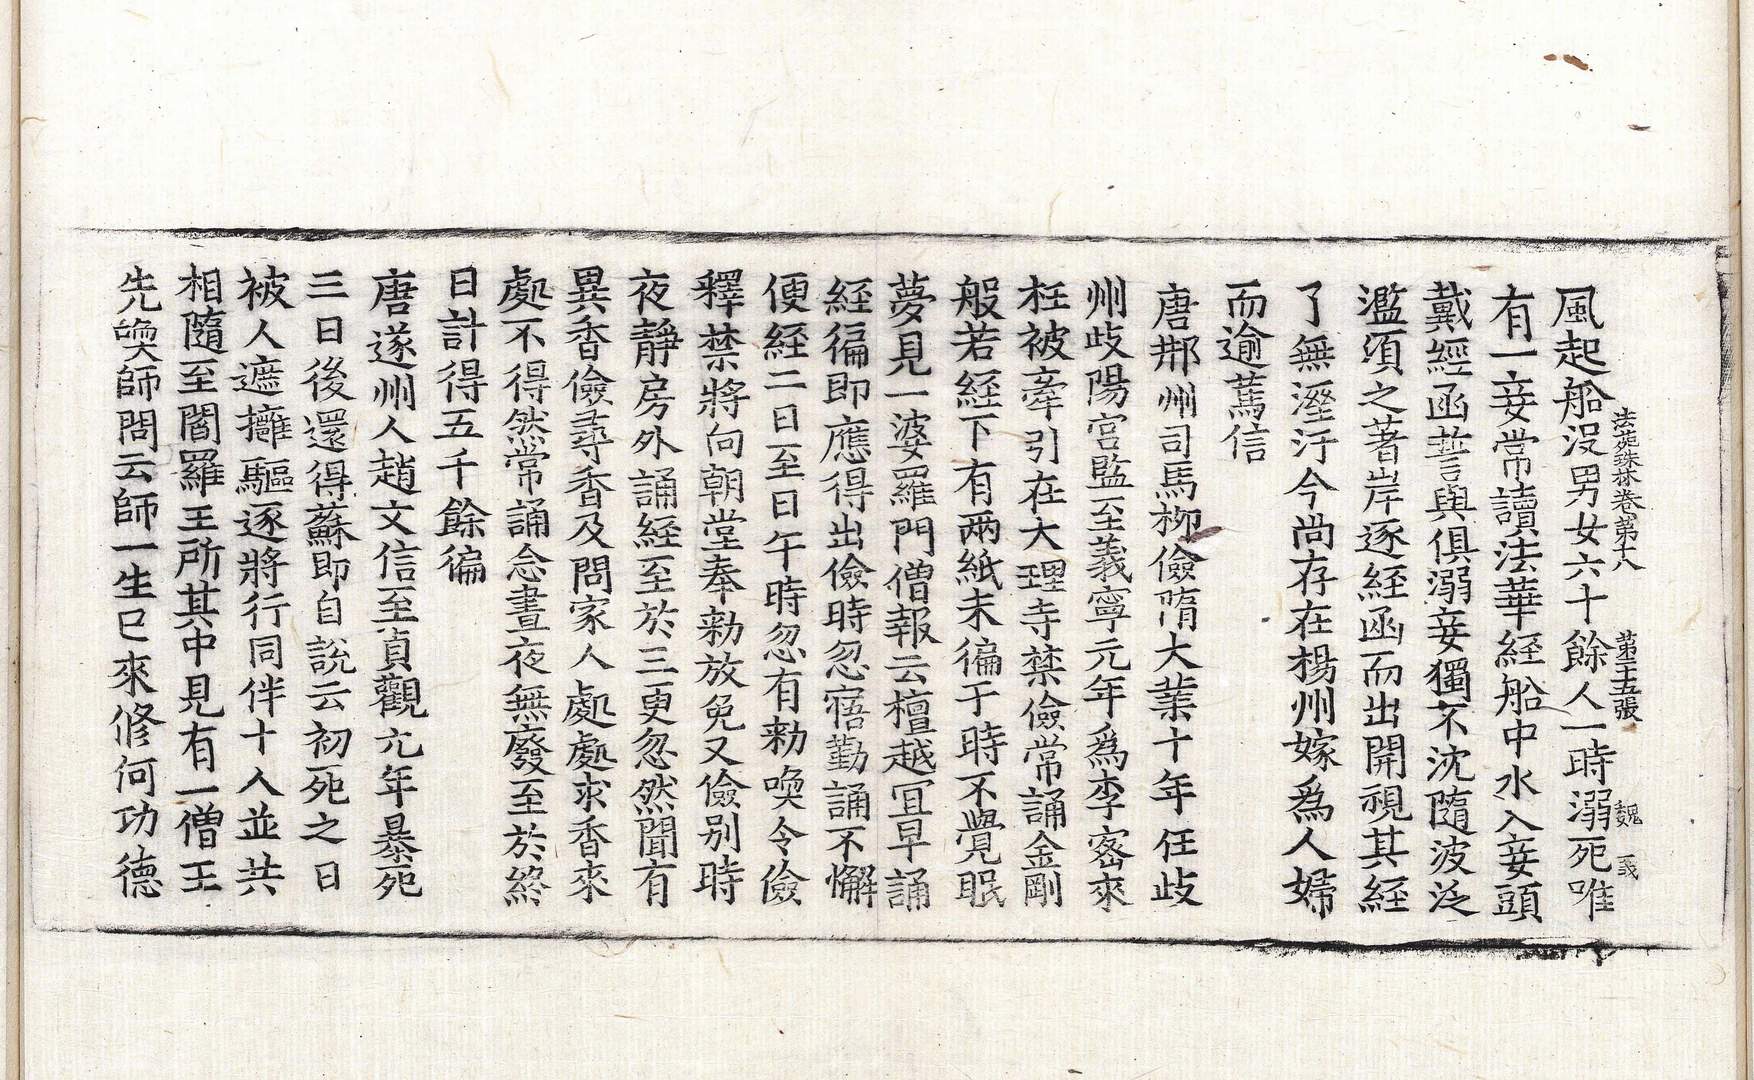 風起船没男女六十餘人一時溺死唯
法苑珠林卷第十八 第二十五張 魏 義
有一妾常讀法華經船中水入妾頭
戴經函誓與俱溺妾獨不沈隨波泛
濫須之著岸逐經函而出開視其經
了無溼汙今尚存在楊州嫁爲人婦
而逾篤信
唐邢州司馬柳儉隋大業十年任歧
州歧陽宮監至義寧元年爲李密來
枉被牽引在大理寺禁儉常誦金剛
般若經下有兩紙未徧于時不覺眠
夢見一婆羅門僧報云檀越冝早誦
經徧即應得出儉時忽寤勤誦不懈
便經二日至日午時忽有勑喚令儉
釋禁將向朝堂奉勑放免又儉別時
夜靜房外誦經至於三更忽然聞有
異香儉尋香及問家人處處求香來
處不得然常誦念晝夜無廢至於終
日計得五千餘徧
唐遂州人趙文信至貞觀元年暴死
三日後還得蘇即自說云初死之日
被人遮擁驅逐將行同伴十人並共
相隨至閻羅王所其中見有一僧王
先喚師問云師一生已來修何功德